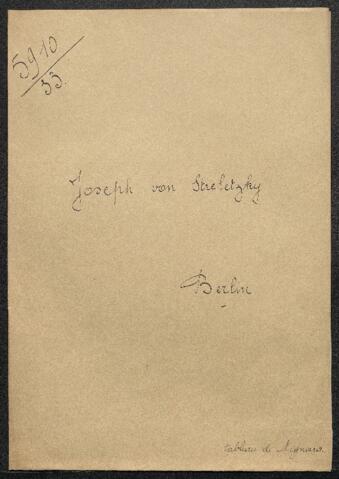 5910
33.
Joseph von Streletzky
Berlin
tableau de Mignard.